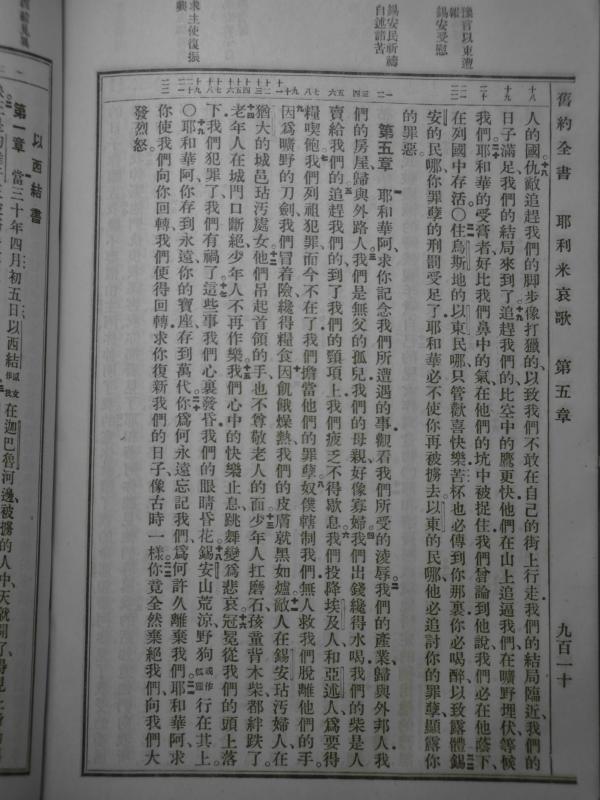 舊約全書 耶利米哀歌 第五章 九百一十
豫言以東遭報
錫安受慰
人的仇敵追趕我們的脚步像打獵的以致我們不敢在自己的街上行走我們的結局臨近我們的
日子滿足我們的結局來到了追趕我們的比空中的鷹更快他們在山上追逼我們在曠野埋伏等候
我們耶和華的受膏者好比我們鼻中的氣在他們的坑中被捉住我們曾論到他說我們必在他蔭下
在列國中存活〇住烏斯地的以東民哪只管歡喜快樂苦杯也必傳到你那裏你必喝醉以致露體錫
安的民哪你罪孽的刑罰受足了耶和華必不使你再被擄去以東的民哪他必追討你的罪孽顯露你
的罪惡
錫安民祈禱
自述諸苦
第五章 耶和華阿求你記念我們所遭遇的事觀看我們所受的凌辱我們的產業歸與外邦人我
們的房屋歸與外路人我們是無父的孤兒我們的母親好像寡婦我們出錢纔得水喝我們的柴是人
賣給我們的追趕我們的到了我們的頸項上我們疲乏不得歇息我們投降埃及人和亞述人爲要得
糧喫飽我們列祖犯罪而今不在了我們擔當他們的罪孽奴僕轄制我們無人救我們脫離他們的手
因爲曠野的刀劍我們冒着險纔得糧食因飢餓燥熱我們的皮膚就黑如爐敵人在錫安玷汚婦人在
猶大的城邑玷汚處女他們吊起首領的手也不尊敬老人的面少年人扛磨石孩童背木柴都絆跌了
老年人在城門口斷絕少年人不再作樂我們心中的快樂止息跳舞變爲悲哀冠冕從我們的頭上落
下我們犯罪了我們有禍了這些事我們心裏發昏我們的眼睛昏花錫安山荒涼野狗行在其上
求主使復振
興
〇耶和華阿你存到永遠你的寶座存到萬代你爲何永遠忘記我們爲何許久離棄我們耶和華阿求
你使我們向你回轉我們便得回轉求你復新我們的日子像古時一樣你竟全然棄絕我們向我們大
發烈怒
以西結書
第一章 當三十年四月初五日以西結在迦巴魯河邊被擄的人中天就開了得見